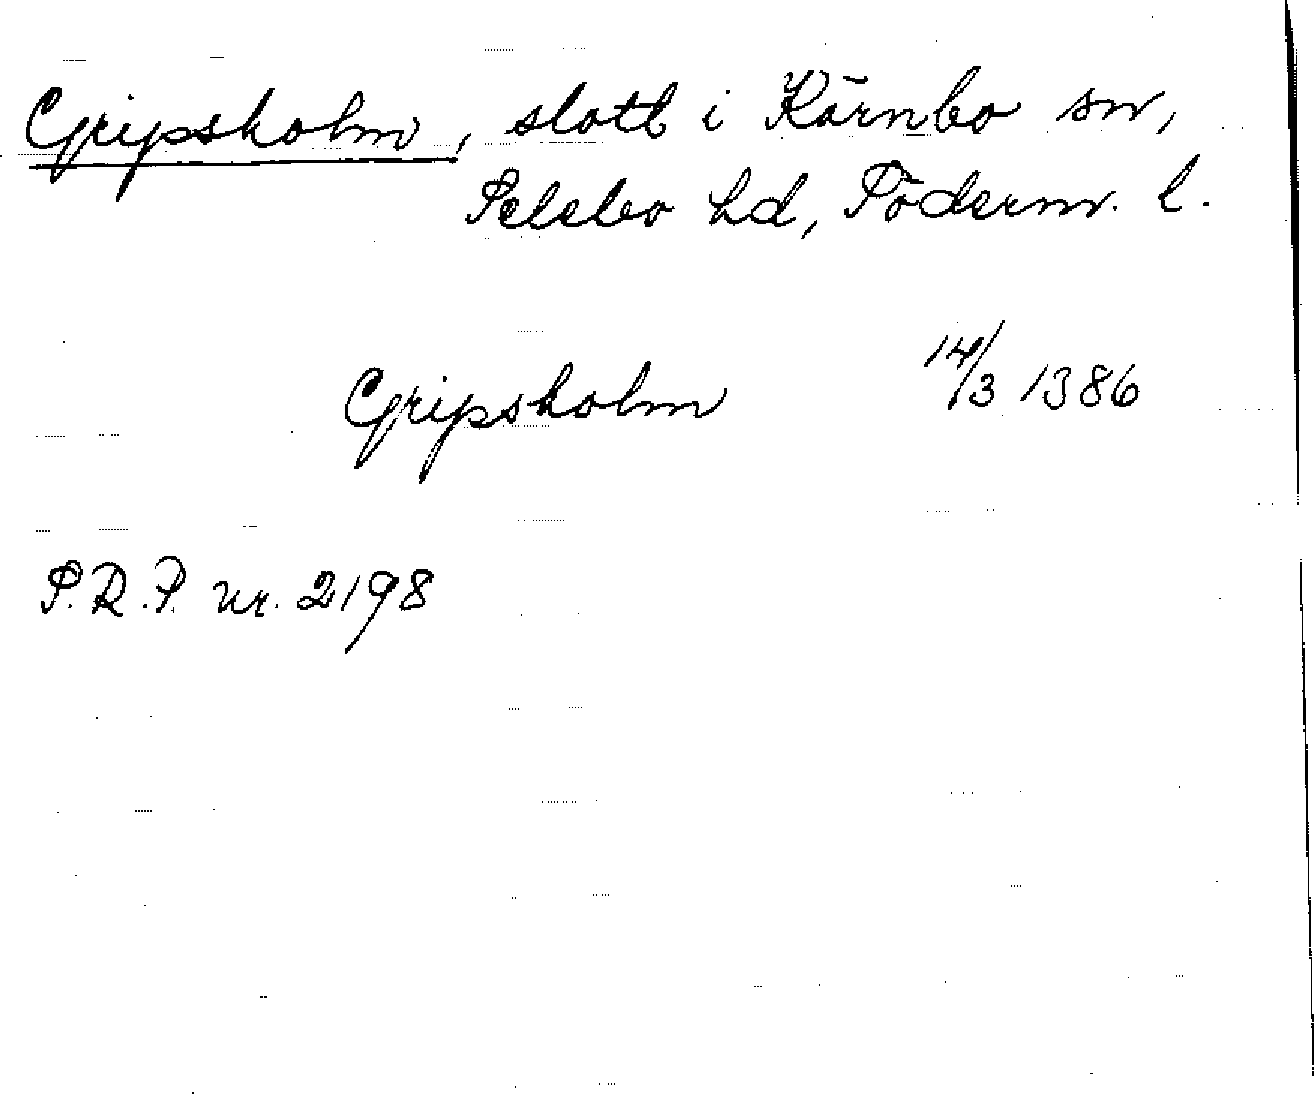 Gripsholm, slott i Kärnbo sn,
Selebo hd, Söderm. l.
Gripsholm 14/3 1386
S.R.P. nr. 2198